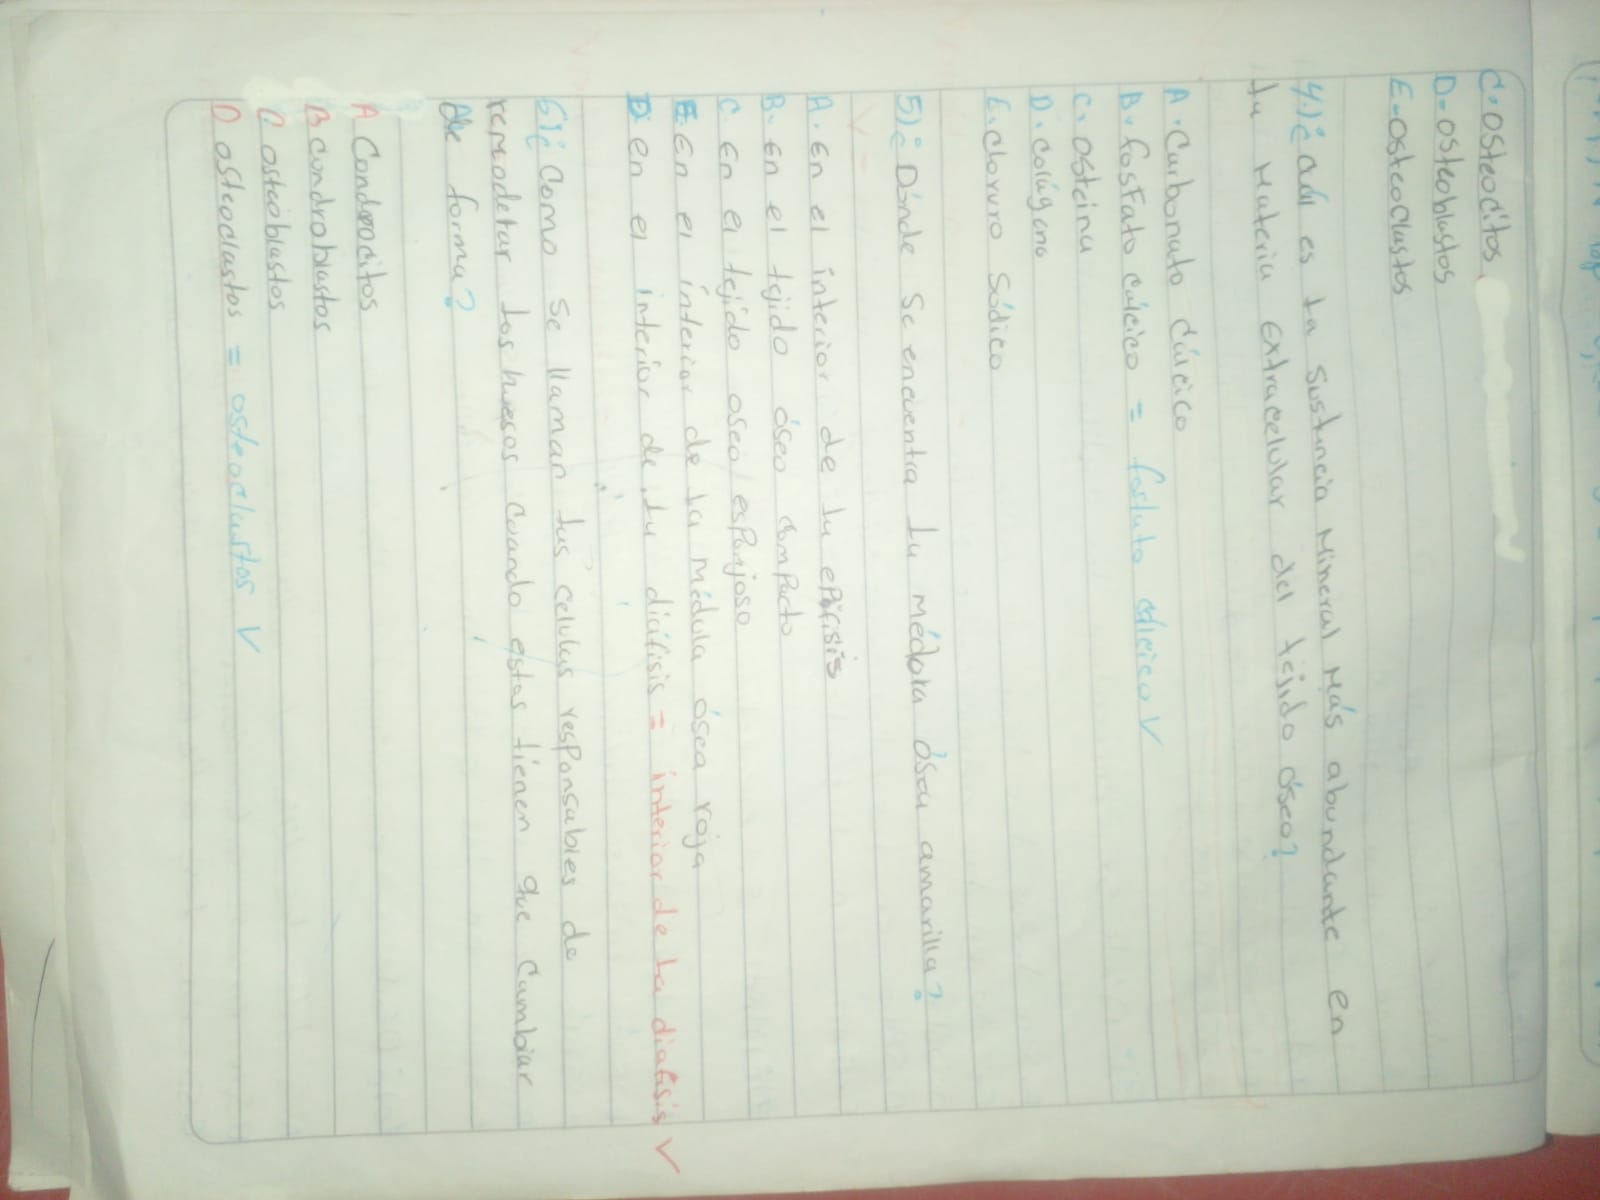 C. Osteocitos
D= osteoblastos
E= osteoclastos
4.) ¿cuál es la sustancia mineral más abundante en
la materia extracelular del tejido óseo?
A. Carbonato cálcico
B. fosfato cálcico = fosfato cálcico V
C. osteina
D. colágano
E. cloruro sódico
5) ¿Dónde se encuentra la médola ósea amarilla?
V -
A. En el interior de la epífisis
B. en el tejido óseo compacto
C. en el tejido oseo esponjoso
E. en el interior de la médula ósea roja
D. en el interior de la diáfisis = interior de la diafisis V
6) ¿Como se llaman las celulas responsables de
remodelar los huesos cuando estos tienen que cambiar
de forma?
A Condrocitos
B condroblastos
C osteoblastos
D osteoclastos = osteoclastos V